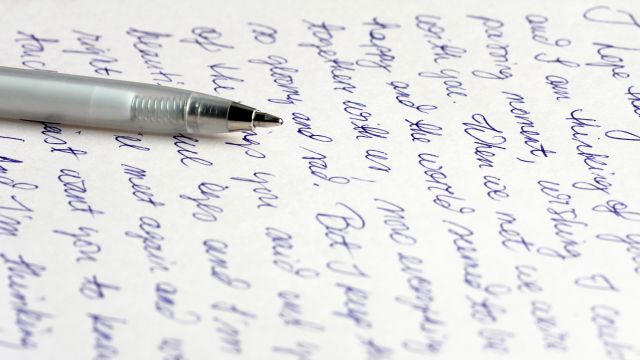 I hope
and I am thinking of you
moment, wishing I could
with you. When we met we were
happy and the world seemed to be
together with us, now everything
so gloomy and sad. But I keep
of the you said and
eyes and I'm
right meet again and
want you to
And I'm thinking